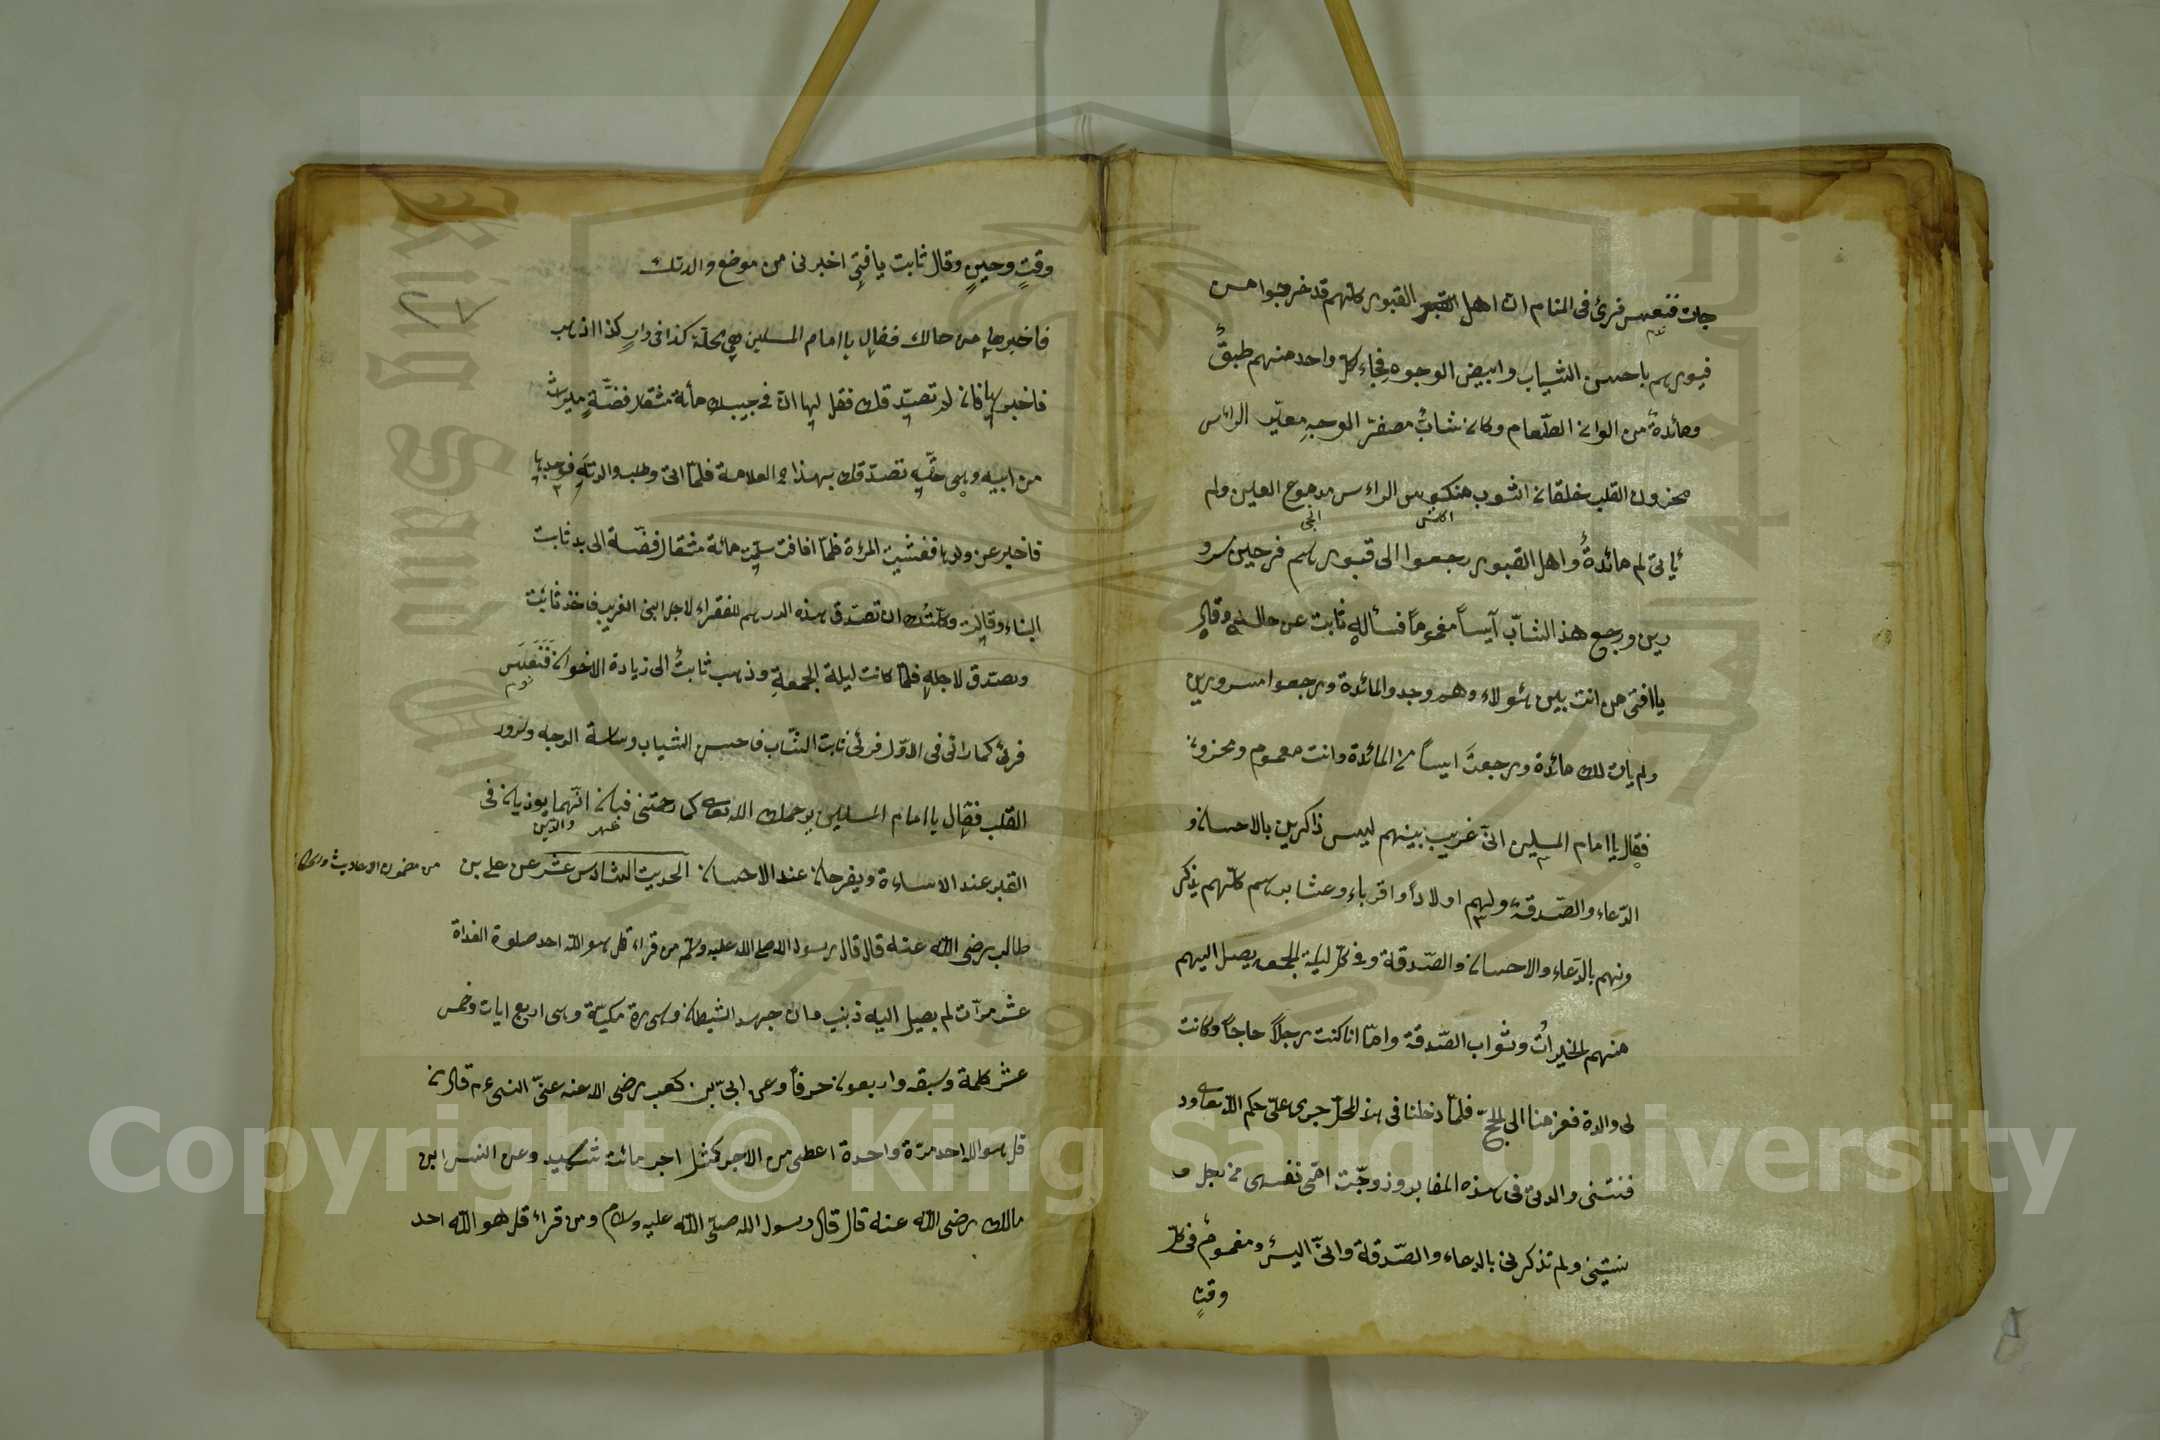 جات فنعس فرئ فى المنام ان اهل القبور كلهم قد خرجوا من
نوم
قبورهم باحسن الثياب وابيض الوجوه فجاء كل واحد منهم طبقٌ
ومائدة من الوان الطّعام وكان شابٌ مصفرّ الوجهِ مغبّر الرائس
محزون القلب خلقان الثوب منكوس الراءس مدموع العين ولم
يأتى لم مائدةٌ واهل القبور رجعوا الى قبورهم فرحين سرو
رين ورجع هذ الشابّ آيساً مغموماً فسأله ثابت عن حاله وقال
يا افتى من انت بين هٔولاء وهم وجدو المائدة ورجعوا مسرورين
ولم يأت لك مائدة ورجعتَ ايساً من المائدة وانت مغموم ومحزون
فقال يا امام المسلمين انّى غريب بينهم ليس ذاكرين بالاحسان و
الدّعاء والصّدقة ولهم اولاداً واقرباء وعشايرهم كلّهم يذكر
ونهم بالدّعاء والاحسان والصّدقة وفى كلّ ليلة الجمعه يصل اليهم
منهم الخيراتُ وثواب الصّدقة وامّا انا كنت رجلاً حاجاً وكانت
لى والدة فعزمنا الى الحجّ فلمّا دخلنا فى هذ المحلّ جرى علىّ حكم اللّه تعاى ود
فنتنى والدتى فى هذه المقابر وزوجّت امّى نفسها من رجل و
نستينى ولم تذكرنى بالدعاء والصّدقة وانّى اليس ومغمومٌ فى كلّ
وقتٍ
وقتٍ وحينٍ وقال ثابت يا فتىِ اخبرنى من موضع والدتك
فاخبرها من حالك فقال يا امام المسلمين هى بمحلّة كذا فى دارٍ كذا اذهب
فاخبرها فان لم تصدّقك فقل لها انّ فى جيبك مأة مثقال فضّةٍ ميراث
من ابيه وهى حقّه تصدّقك بهذا العلامة فلمّا اتى وطلب والدته فوجدها
فاخبر عن ولدها فغشيت المرءة فلمّا افاقت سلّمت مائة مثقال فضّة الى يد ثابت
البناء وقالت وكّلتُك ان تصدّق هذه الدرهم للفقراء لاجل ابنى الغريب فاخذ ثابت
وتصدّق لاجله فلمّا كانت ليلة الجمعةِ وذهب ثابتٌ الى زيادة الاخوان فَنَعَسَ
نوم
فرئ كما رائى فى الاوّل فرئى ثابت الشّاب فاحسن الثياب وسامة الوجه وسرور
القلب فقال يا امام المسلمين يرحمك اللّه تعاى كما رحمتنى فبان انّهما يوذيان فى
القبر عند الاساءة ويفرحان عند الاحسان الحديث السّادس عشر عن على بن
طالب رضى اللّه عنه قال قال رسول اللّه صلى اللّه عليه وسلّم من قراء قل هو اللّه احد صلوة الغداة
عشر مرّات لم يصل اليه ذنب وان جهد الشيطان وسورة مكيّة وهى اربع ايات وخمس
عشر كلمة وسبعة واربعون حرفاً وعن ابىّ بن كعب رضى اللّه عنه عنّ النبىءم قال من
قل هو اللّه احد مرّة واحدة اعطى من الاجر كمثل اجر مائت شهيد وعن انس ابن
مالك رضى اللّه عنه قال قال رسول اللّه صلّى اللّه عليه وسلام ومن قراء قل هو اللّه احد
Copyright © King Saud University
King Saud University
1957